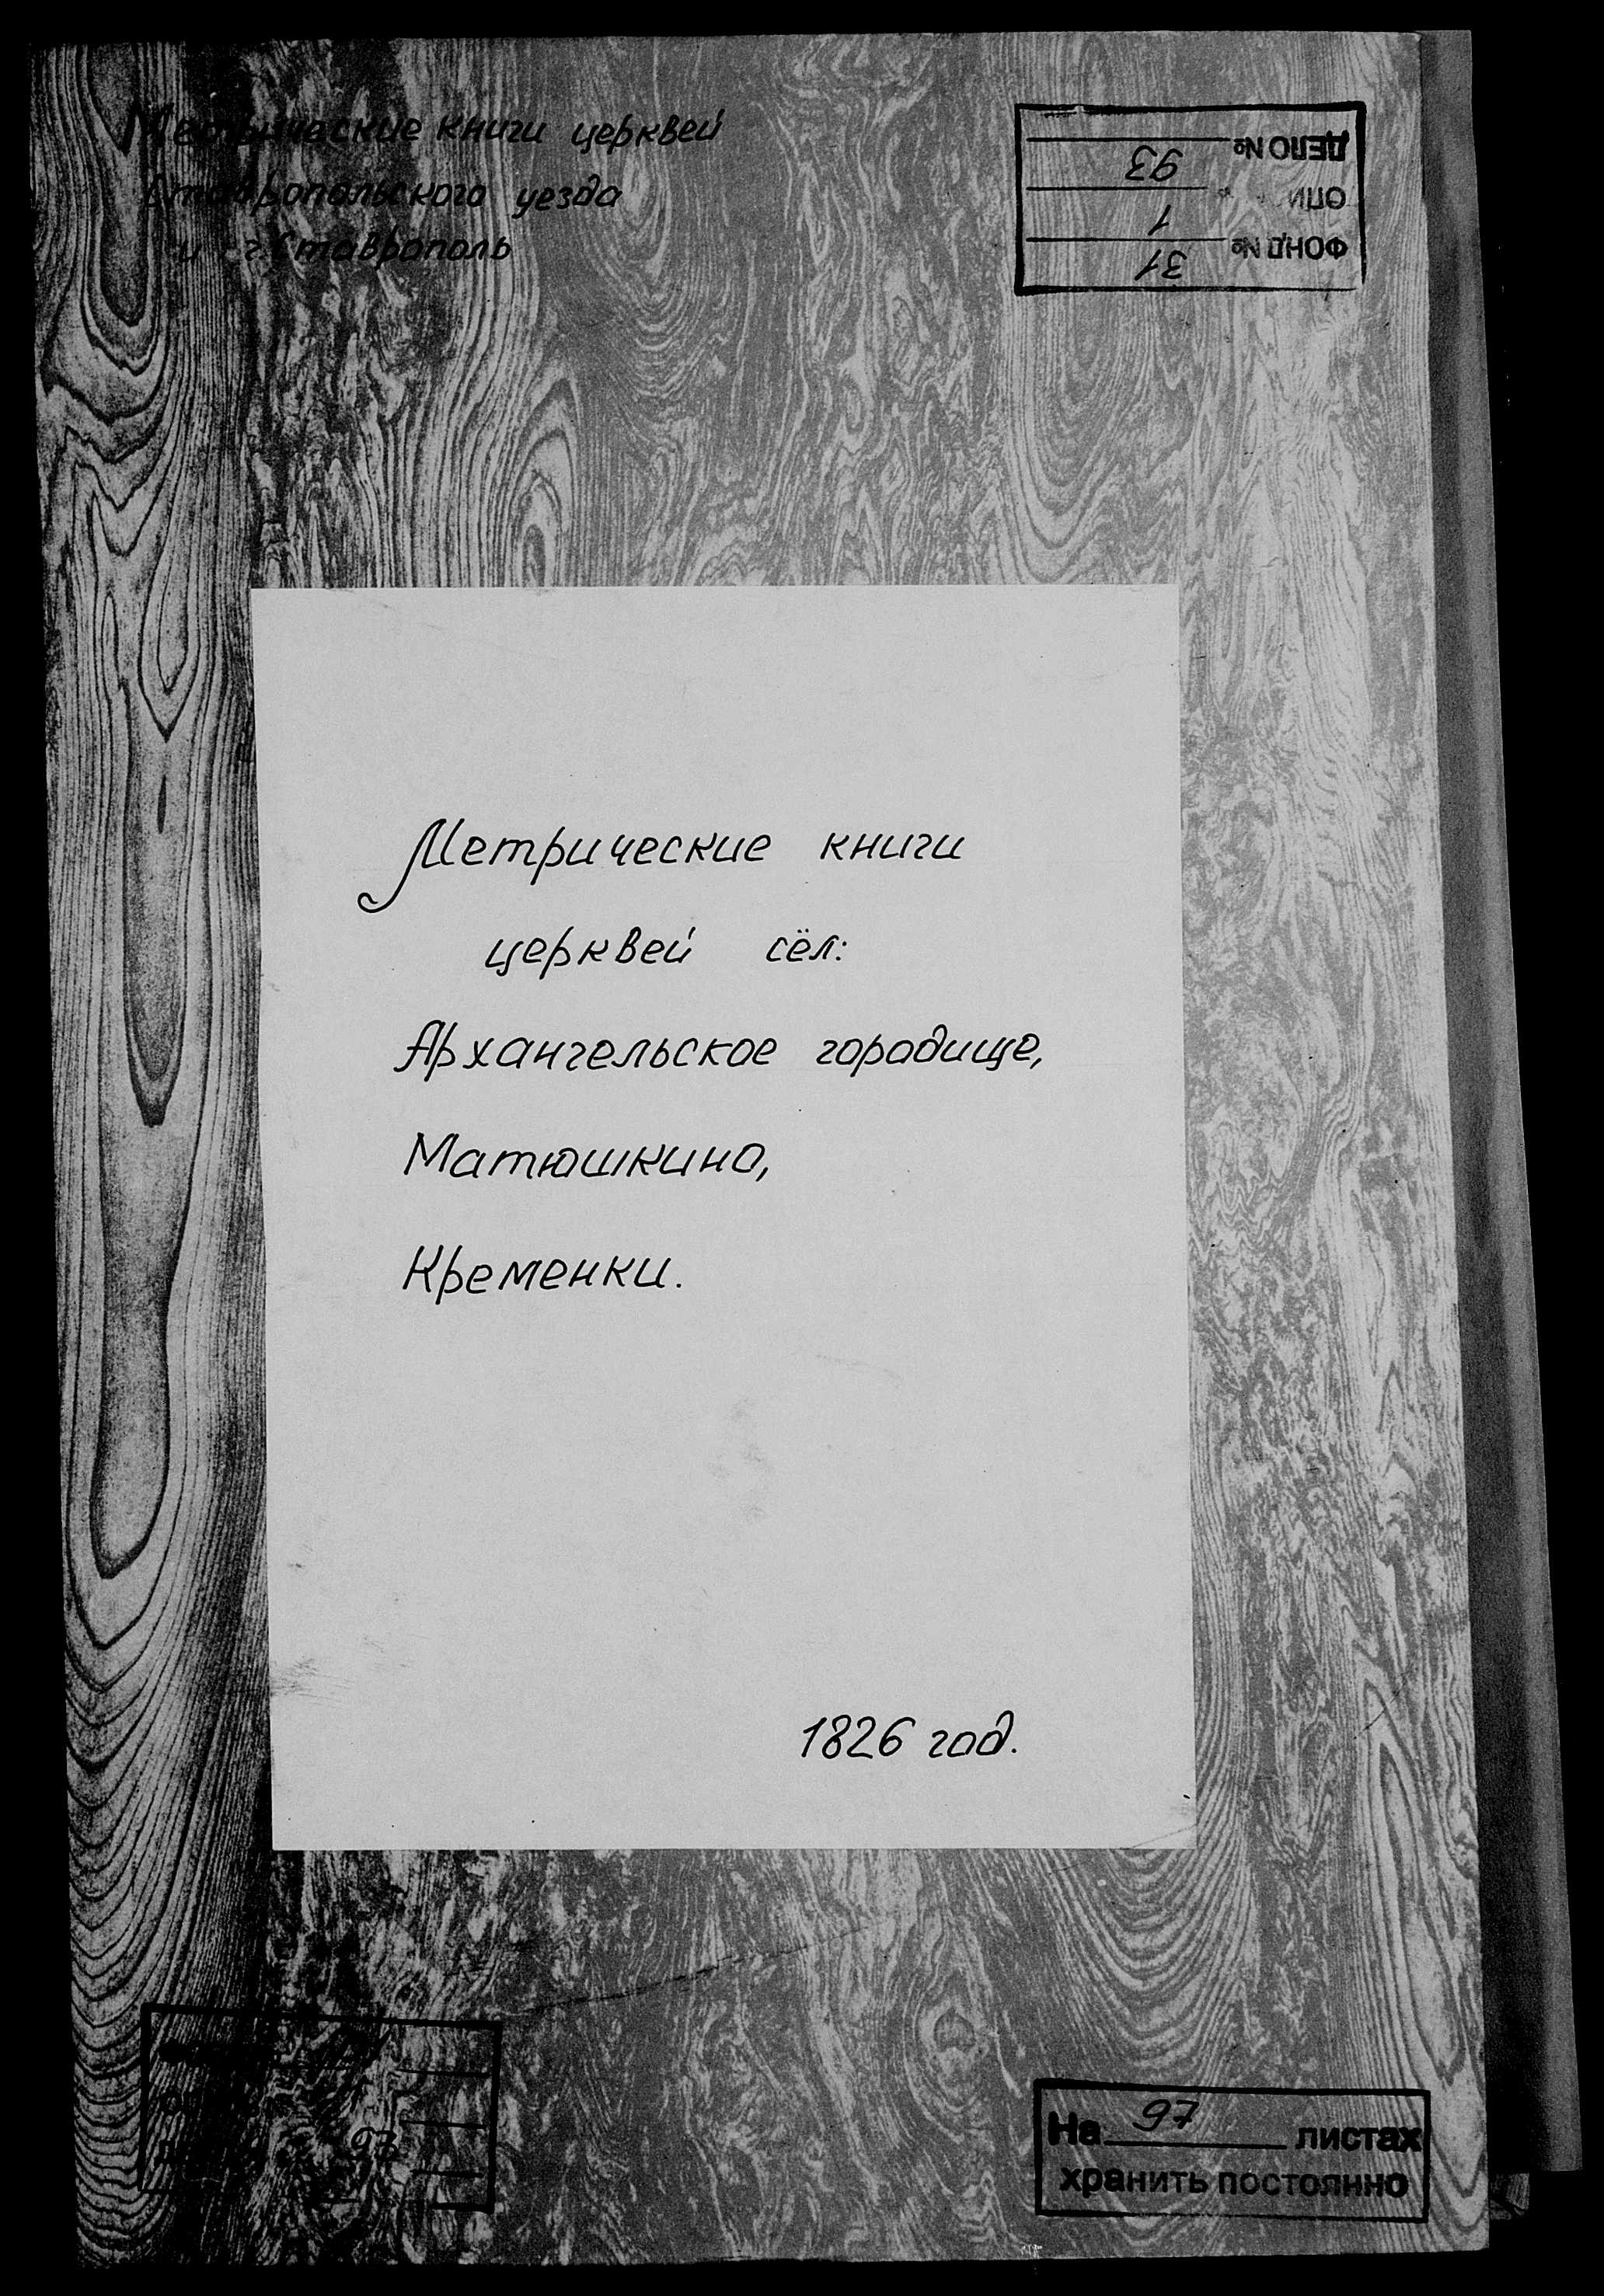 Метрические книги церквей
Ставропольского уезда
и г. Ставрополь
ДЕЛО № 93
ОПИ 1
ФОНД № 31
Метрические книги
церквей сёл:
Архангельское городище,
Матюшкино,
Кременки.
1826 год.
93
На 97 листах
хранить постоянно